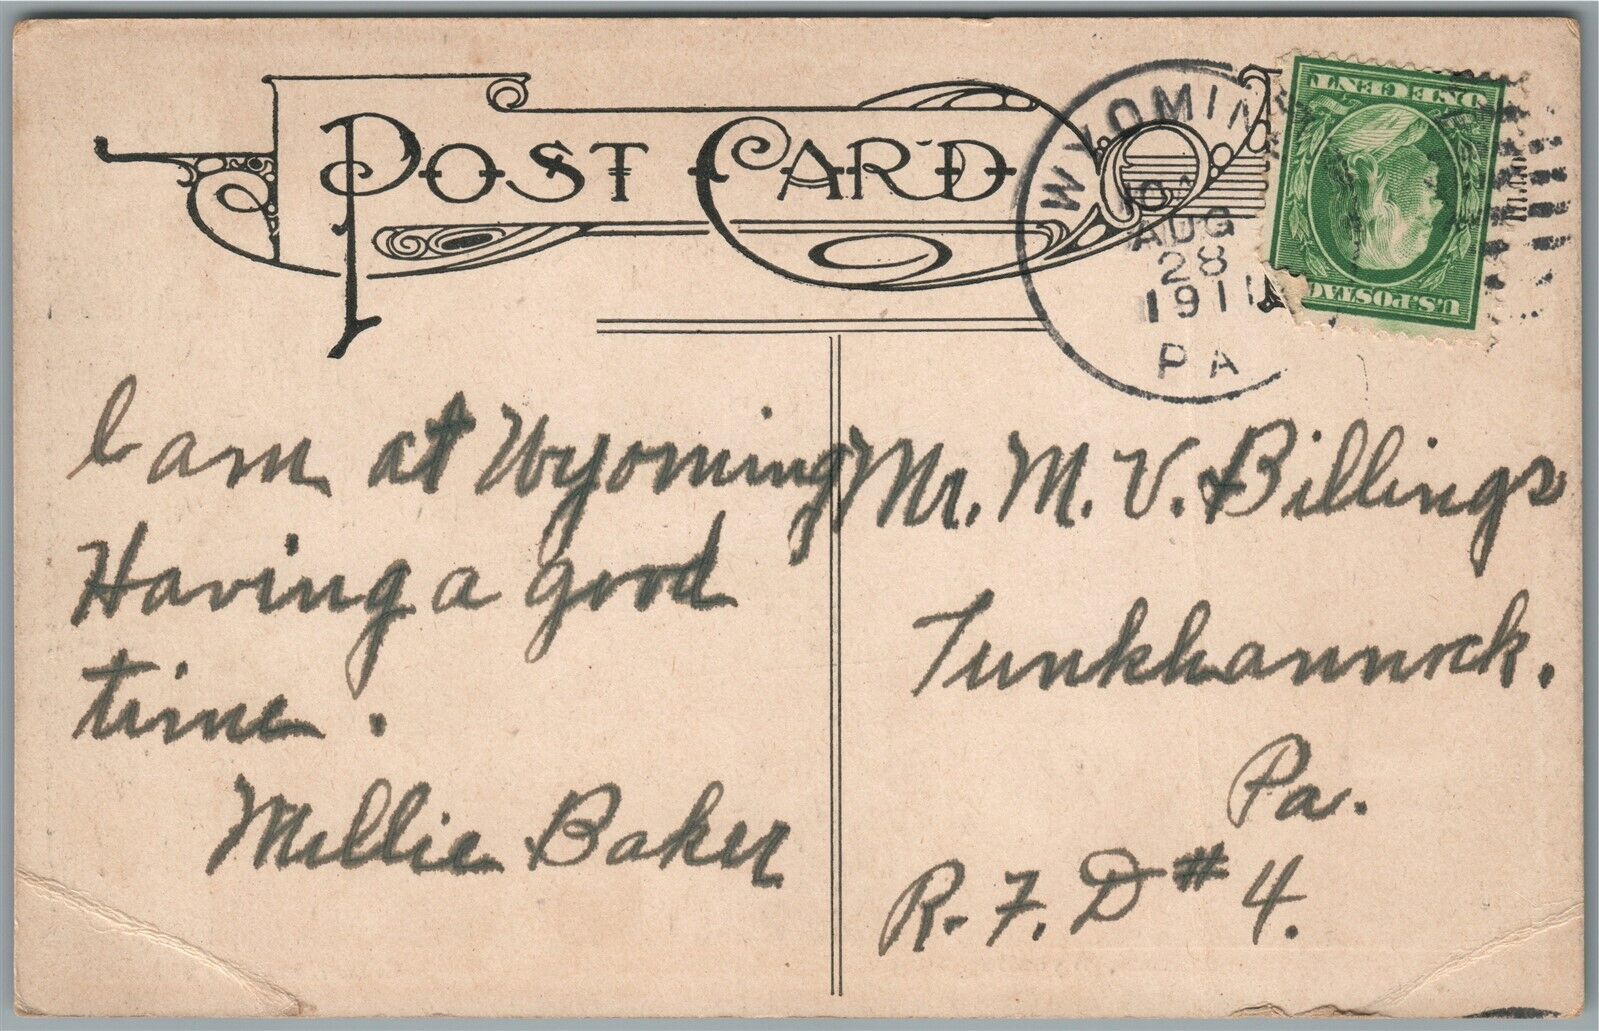 POST CARD
WYOMING
AUG
28
1911
PA
ONE CENT
U.S. POSTAG
I am at Wyoming
Having a good
time.
Millie Baker
Mr. M. V. Billings
Tunkhannock.
Pa.
R. F. D # 4.